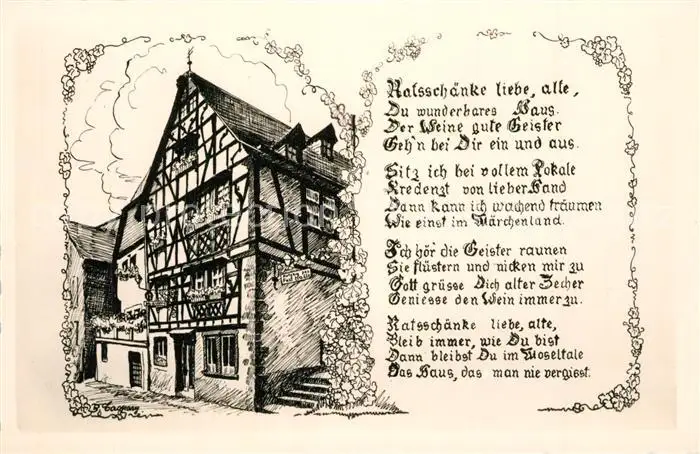 Ratsschänke liebe, alte,
Du wunderbares Haus.
Der Weine gute Geister
Geh'n bei Dir ein und aus.
Sitz ich bei vollem Pokale
Kredenzt von lieber Hand
Dann kann ich wachend träumen
Wie einst im Märchenland.
Ich hör' die Geister raunen
Sie flüstern und nicken mir zu
Gott grüsse Dich alter Zecher
Geniesse den Wein immerzu.
Ratsschänke liebe, alte,
Bleib immer, wie Du bist
Dann bleibst Du im Moseltale
Das Haus, das man nie vergisst.